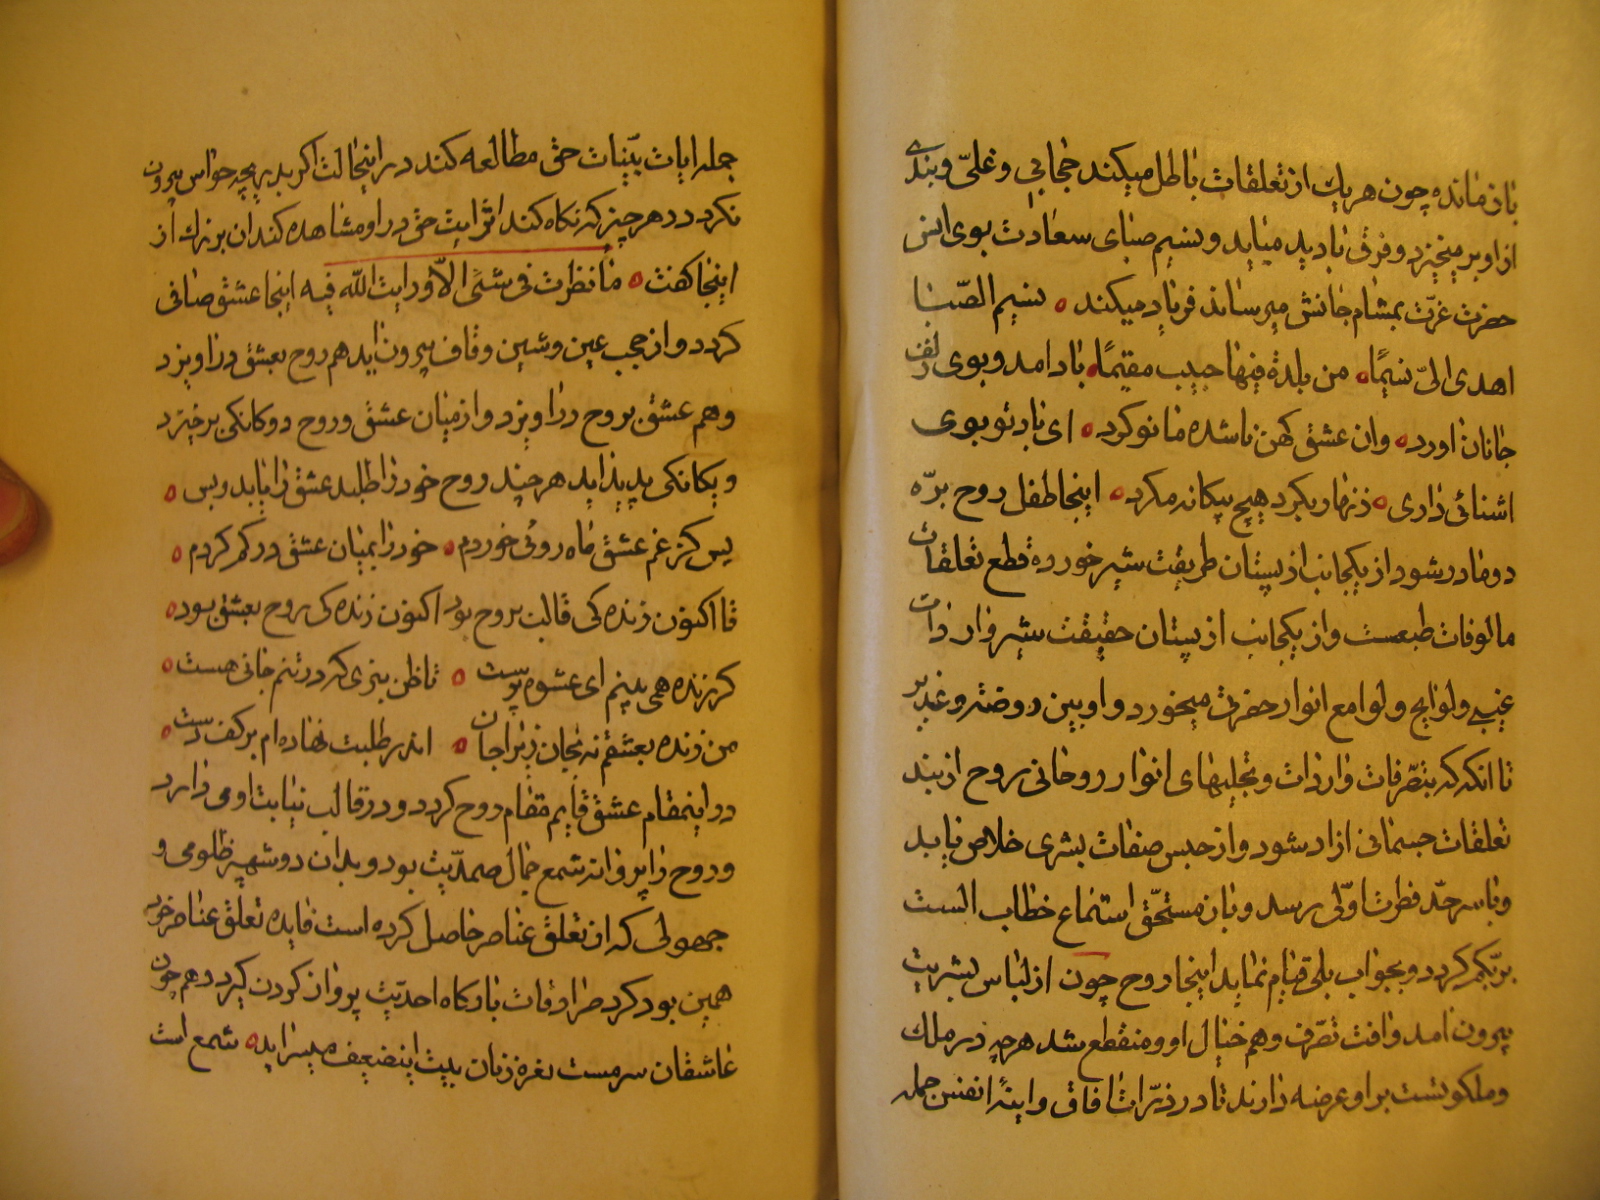 باز مانده چون هر یک از تعلقات باطل میکند حجابی و غلی و بندی
از او بر میخیزد و فرق بادید میاید و نسیم صبای سعادت بوی انس
حضرت عزت بمشام جانش میرساند فریاد میکند نسیم الصبا
اهدی الی نسیما من بلدة فیها حبیب مقیما باد امد و بوی زلف
جانان اورد وان عشق کهن ناشده ما نو کرد ای باد تو بوی
اشنائی داری زنهار بکرد هیچ بیکانه مکرد اینجا طفل روح بره
دو مادر شود از یکجانب از پستان طریقت شیر خورد و قطع تعلقات
مالوفات طبعست و از یکجانب از پستان حقیقت شیر واردات
غیبی و لوایح و لوامع انوار حضرت میخورد و او بین روضه و غدیر
تا انکه که بتصرفات واردات و تجلیهای انوار روحانی روح از بند
تعلقات جسمانی ازاد شود و از حبس صفات بشری خلاص یابد
و باسر حد فطرت اولی رسد و باز مستحق استماع خطاب الست
بربکم کردد و بجواب بلی قیام نماید اینجا روح چون از لباس بشریت
بیرون امد وافت تصرف وهم خیال او و منقطع شد هرچه در ملک
و ملکوتست بر او عرضه دارند تا در ذرات افاق و اینه انفس جمله
جمله ایات بینات حق مطالعه کند در اینحالت اکر بدریچه حواس بیرون
نکرد در هر چیز که نکاه کند اثر ایت حق در او مشاهده کند ان بزرک از
اینجا کفت ما نظرت فی شئی الا و رایت الله فیه اینجا عشق صافی
کردد و از حجب عین و شین و قاف بیرون اید هم روح بعشق دراویزد
وهم عشق بروح دراویزد و از میان عشق و روح دوکانکی برخیزد
و یکانکی پدید اید هر چند روح خود را طلبد عشق را یابد و بس
بس کز غم عشق ماه روئی خوردم خود را بمیان عشق در کم کردم
تا اکنون زنده کی قالب بروح بود اکنون زنده کی روح بعشق بود
کر زنده همی بینم ای عشوه پرست تا ظن نبری که در تنم جانی هست
من زنده بعشقم نه بجان زیرا جان اندر طلبت نهاده ام بر کف دست
در اینمقام عشق قایم مقام روح کردد و در قالب نیابت او می دارد
و روح را پروانه شمع جمال صمدیت بود و بدان دو شهپر ظلومی و
جهولی که از تعلق عناصر حاصل کرده است فایده تعلق عناصر خود
همین بود کرد سرادقات بارکاه احدیت پرواز کردن کیرد هم چون
عاشقان سرمست نعره زنان بیت اینضعیف میسراید شمع است